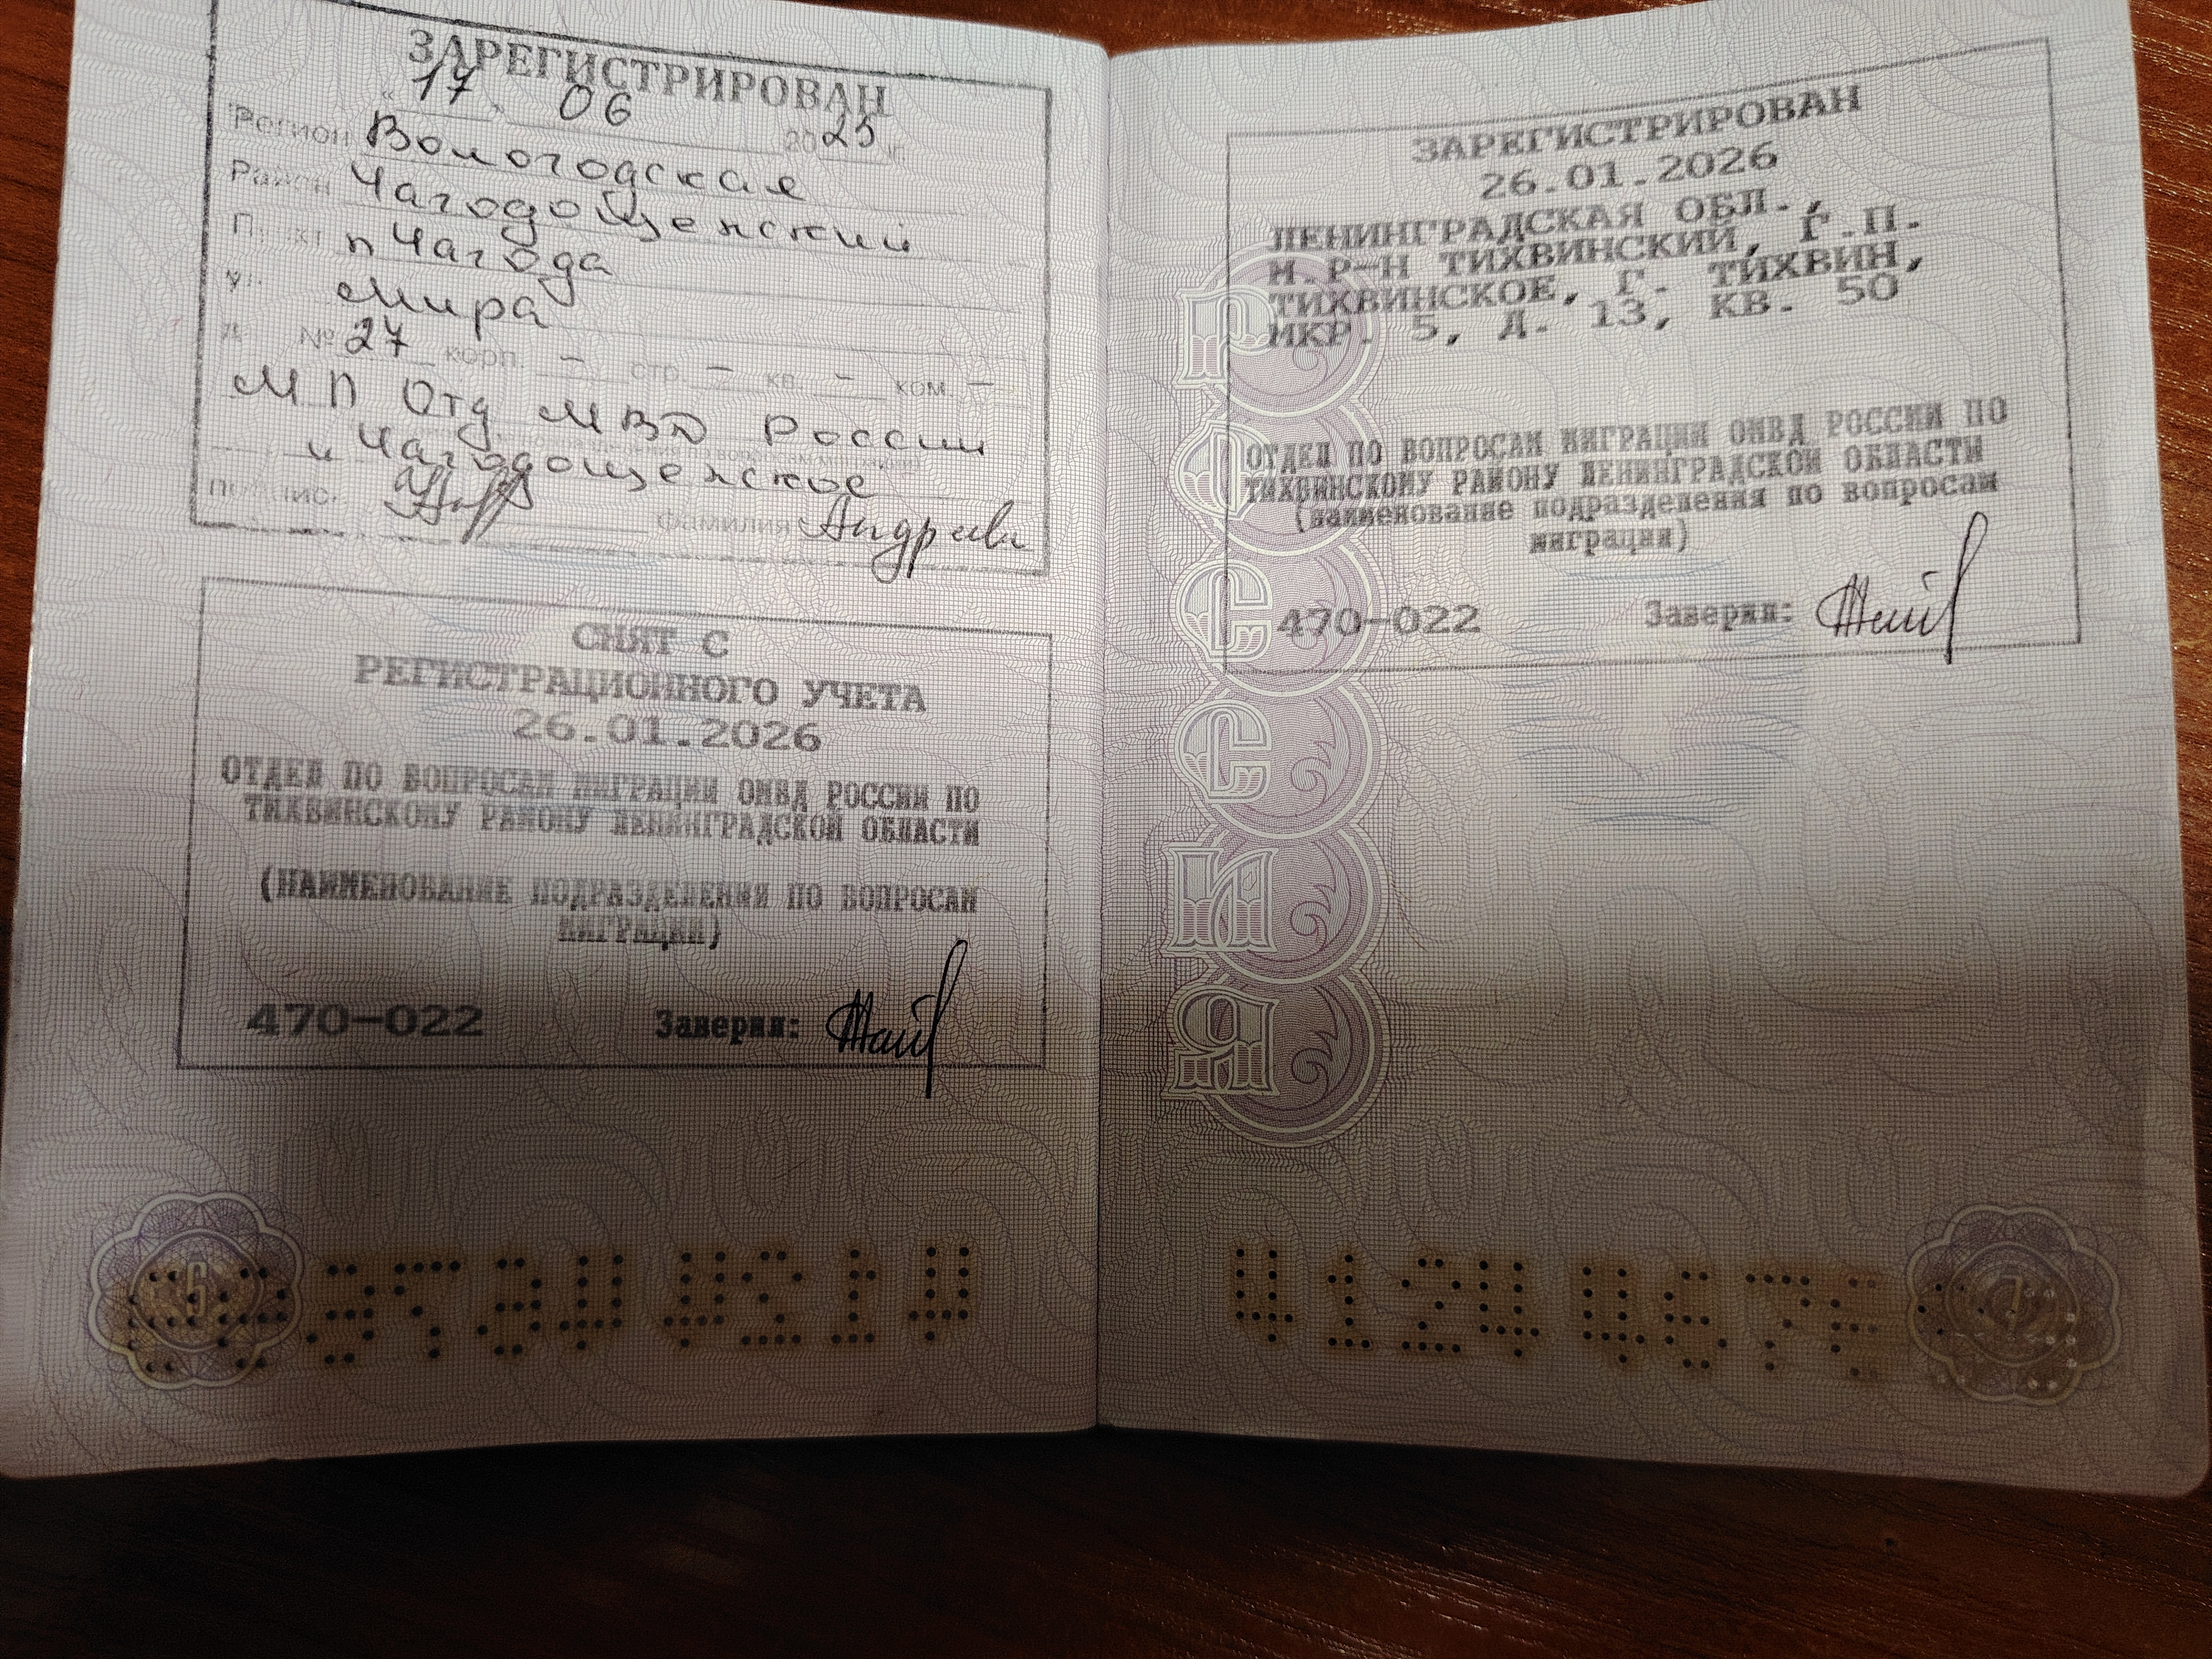 ЗАРЕГИСТРИРОВАН
"17" 06 2025 г.
Регион Вологодская
Район Чагодощенский
Пункт п Чагода
ул. Мира
д. № 27 корп. – стр. – кв. – ком. –
МП Отд МВД России
и Чагодощенское
подпись фамилия
СНЯТ С
РЕГИСТРАЦИОННОГО УЧЕТА
26.01.2026
ОТДЕЛ ПО ВОПРОСАМ МИГРАЦИИ ОМВД РОССИИ ПО
ТИХВИНСКОМУ РАЙОНУ ЛЕНИНГРАДСКОЙ ОБЛАСТИ
(НАИМЕНОВАНИЕ ПОДРАЗДЕЛЕНИЯ ПО ВОПРОСАМ
МИГРАЦИИ)
470-022 Заверил:
6
ЗАРЕГИСТРИРОВАН
26.01.2026
ЛЕНИНГРАДСКАЯ ОБЛ.,
М.Р-Н ТИХВИНСКИЙ, Г.П.
ТИХВИНСКОЕ, Г. ТИХВИН,
МКР. 5, Д. 13, КВ. 50
ОТДЕЛ ПО ВОПРОСАМ МИГРАЦИИ ОМВД РОССИИ ПО
ТИХВИНСКОМУ РАЙОНУ ЛЕНИНГРАДСКОЙ ОБЛАСТИ
(наименование подразделения по вопросам
миграции)
470-022 Заверил:
РОССИЯ
7